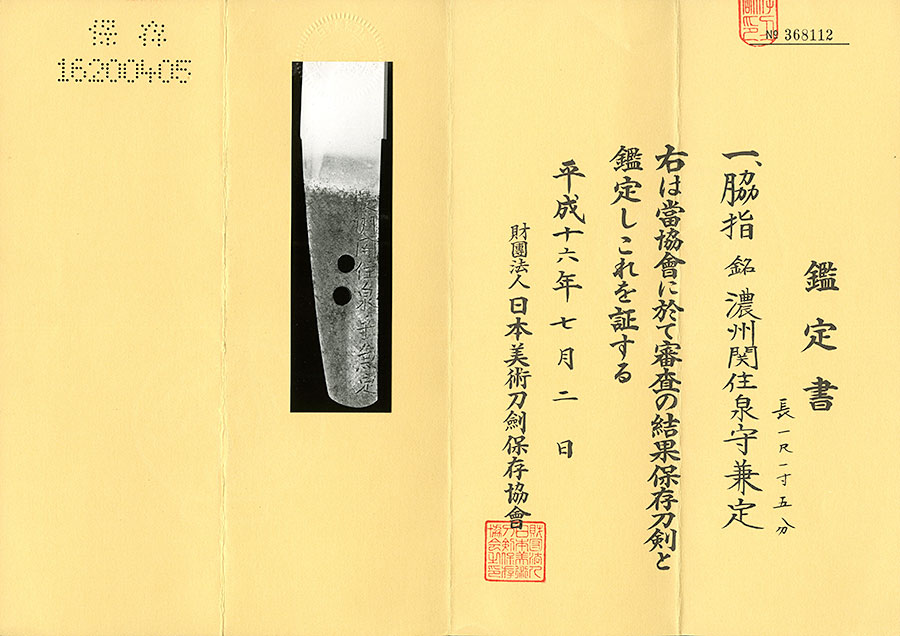 № 368112
鑑定書
一、脇指 銘 濃州関住泉守兼定
長一尺一寸五分
右は當協會に於て審査の結果保存刀剣と
鑑定しこれを証する
平成十六年七月二日
財團法人日本美術刀劍保存協會
保存
16200405